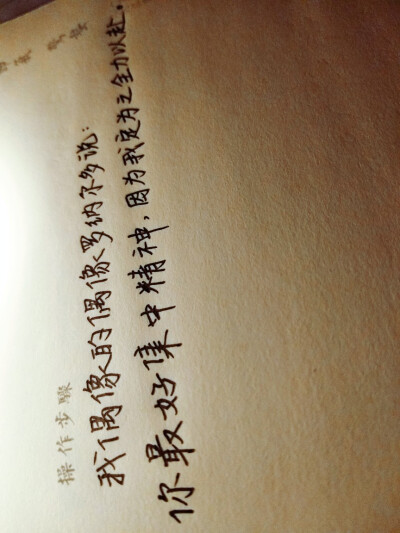 操作步骤
我偶像的偶像罗纳尔多说：
你最好集中精神，因为我定为之全力以赴。